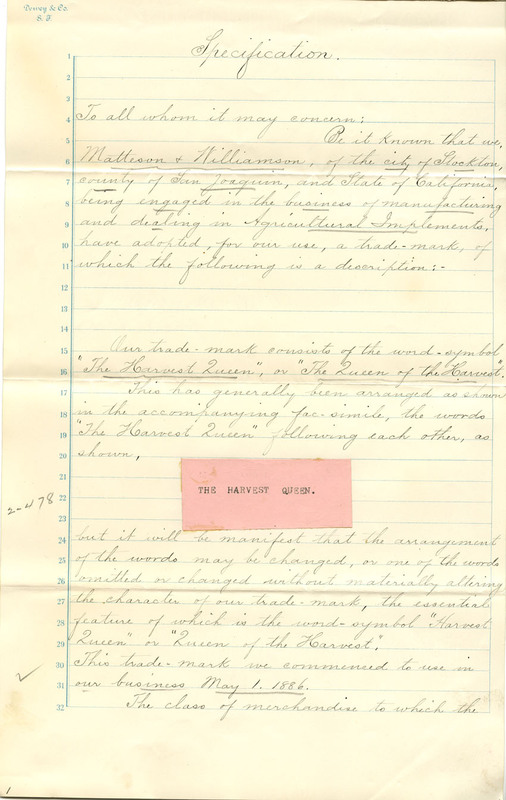 Dewey & Co.
S. F.
Specification.
1
2
3
4
5
6
7
8
9
10
11
15
16
17
18
19
20
21
22
23
24
25
26
27
28
29
30
31
32
To all whom it may concern:
Be it known that we,
Matteson & Williamson, of the city of Stockton,
county of San Joaquin, and State of California,
being engaged in the business of manufacturing
and dealing in Agricultural Implements,
have adopted, for our use, a trade-mark, of
which the following is a description:-
Our trade-mark consists of the word-symbol
"The Harvest Queen", or "The Queen of the Harvest".
This has generally been arranged as shown
in the accompanying fac-simile, the words
"The Harvest Queen" following each other, as
shown,
THE HARVEST QUEEN.
2-478
but it will be manifest that the arrangement
of the words may be changed, or one of the words
omitted or changed without materially altering
the character of our trade-mark, the essential
feature of which is the word-symbol "Harvest
Queen" or "Queen of the Harvest".
This trade-mark we commenced to use in
our business May 1. 1886.
The class of merchandise to which the
1